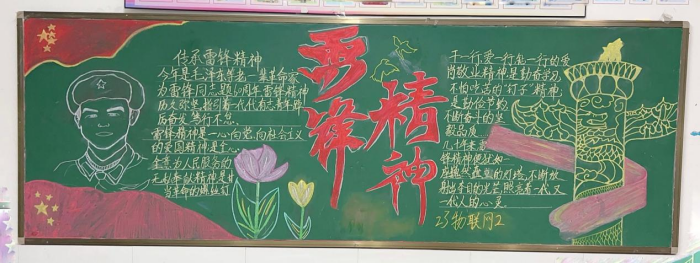 传承雷锋精神
今年是毛泽东等老一辈革命家
为雷锋同志题词周年雷锋精神
历久弥坚,指引着一代代有志青年踔
厉奋发笃行不怠.
雷锋精神是一心向党,向社会主义
的爱国精神是全心
全意为人民服务的
无私奉献精神是甘
当革命的螺丝钉
雷锋
精神
干一行爱一行专一行的爱
岗敬业精神是勤奋学习,
不怕吃苦的"钉子"精神,
是勤俭节约,
不断奋斗的坚
毅品质…
几十年来雷
锋精神便犹如一
座矗立的灯塔,不断放
射出夺目的光芒,照亮着一代又
一代人的心灵.
23物联网2